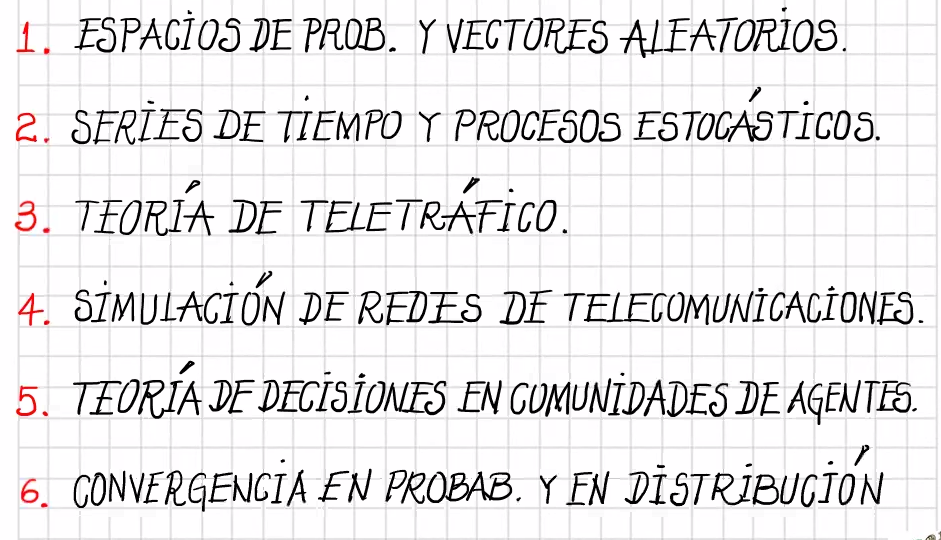 1. ESPACIOS DE PROB. Y VECTORES ALEATORIOS.
2. SERIES DE TIEMPO Y PROCESOS ESTOCÁSTICOS.
3. TEORÍA DE TELETRÁFICO.
4. SIMULACIÓN DE REDES DE TELECOMUNICACIONES.
5. TEORÍA DE DECISIONES EN COMUNIDADES DE AGENTES.
6. CONVERGENCIA EN PROBAB. Y EN DISTRIBUCIÓN